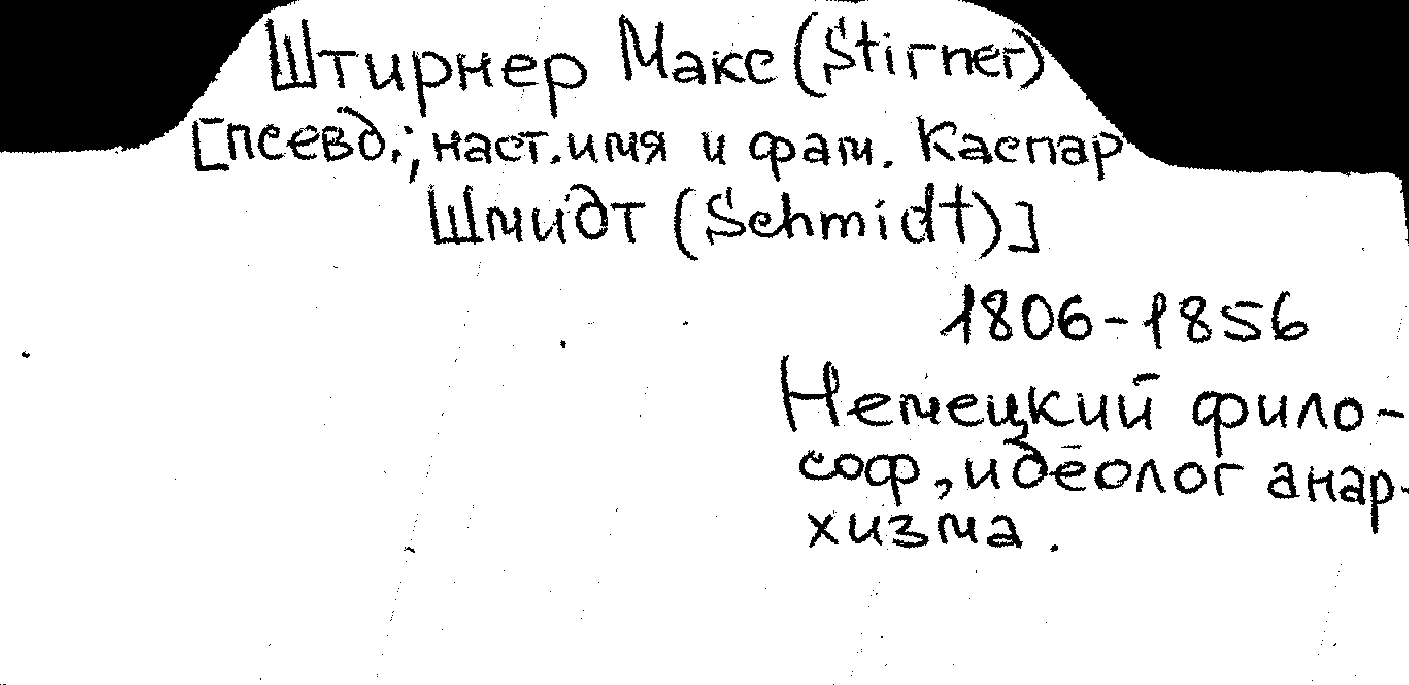 Штирнер Макс (Stirner)
[псевд.; наст. имя и фам. Каспар
Шмидт (Schmidt)]
1806-1856
Немецкий фило-
соф, идеолог анар-
хизма.